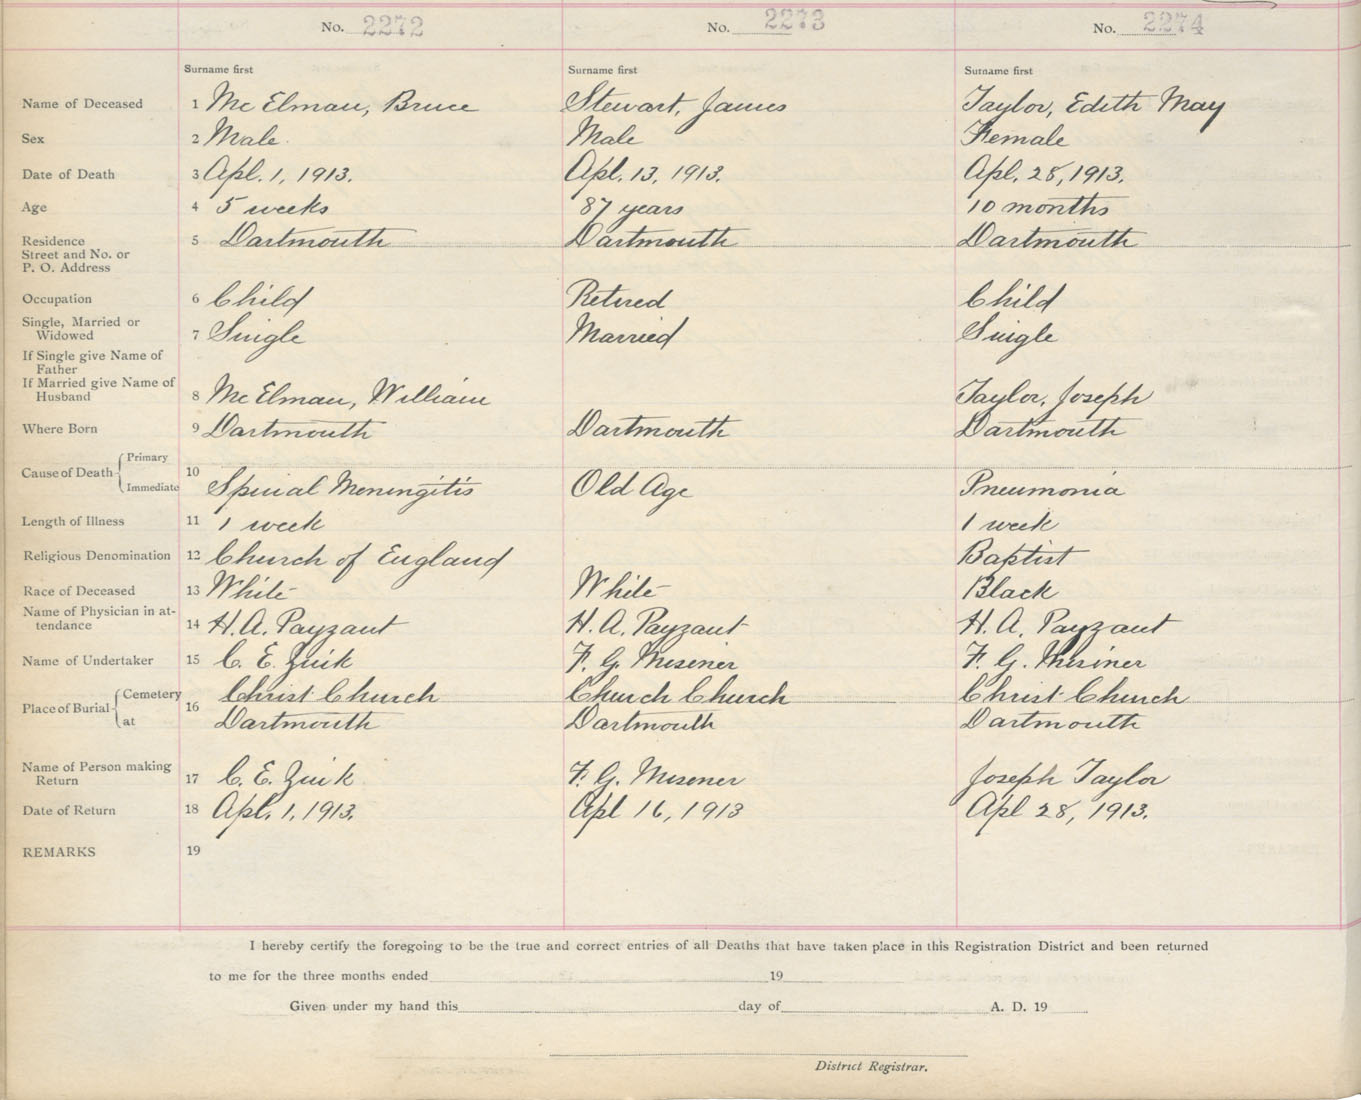 No. 2272 No. 2273 No. 2274
Surname first Surname first Surname first
Name of Deceased 1 Mc Elman, Bruce Stewart, James Taylor, Edith May
Sex 2 Male Male Female
Date of Death 3 Apl. 1, 1913. Apl. 13, 1913. Apl. 28, 1913.
Age 4 5 weeks 87 years 10 months
Residence 5 Dartmouth Dartmouth Dartmouth
Street and No. or
P. O. Address
Occupation 6 Child Retired Child
Single, Married or
Widowed 7 Single Married Single
If Single give Name of
Father
If Married give Name of
Husband 8 Mc Elman, William Taylor, Joseph
Where Born 9 Dartmouth Dartmouth Dartmouth
Primary
Cause of Death 10
Immediate Spinal Meningitis Old Age Pneumonia
Length of Illness 11 1 week 1 week
Religious Denomination 12 Church of England Baptist
Race of Deceased 13 White White Black
Name of Physician in at-
tendance 14 H. A. Payzant H. A. Payzant H. A. Payzant
Name of Undertaker 15 C. E. Zink F. G. Misener F. G. Misiner
Cemetery Christ Church Church Church Christ Church
Place of Burial 16
at Dartmouth Dartmouth Dartmouth
Name of Person making
Return 17 C. E. Zink F. G. Misener Joseph Taylor
Date of Return 18 Apl. 1, 1913. Apl 16, 1913 Apl 28, 1913.
REMARKS 19
I hereby certify the foregoing to be the true and correct entries of all Deaths that have taken place in this Registration District and been returned
to me for the three months ended 19
Given under my hand this day of A. D. 19
District Registrar.